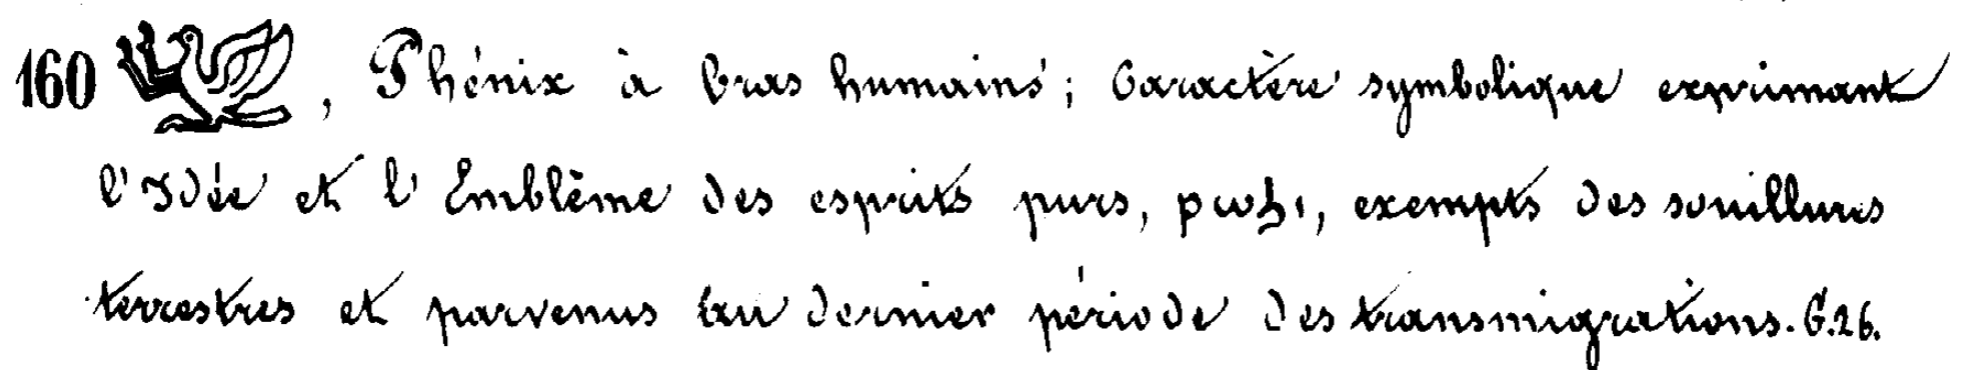 160 , Phénix à bras humains; Caractère symbolique exprimant
l'Idée et l'Emblême des esprits purs, ⲣⲱϧⲓ, exempts des souillures
terrestres et parvenus au dernier période des transmigrations. G. 26.